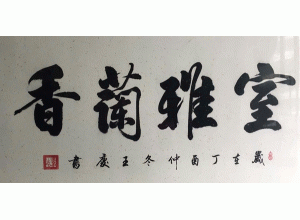 室雅蘭香
歲在丁酉仲冬王度書